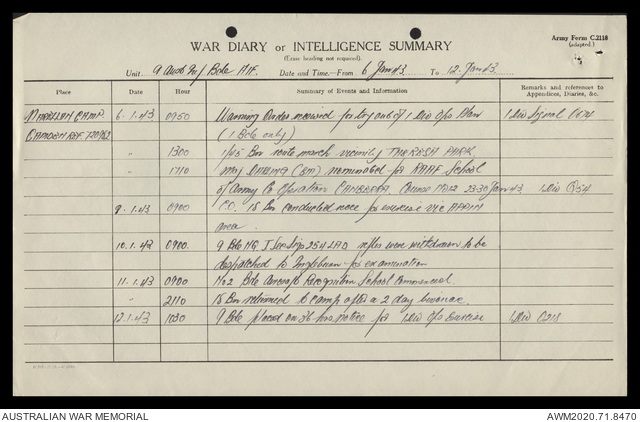 Army Form C.2118
(adapted.)
WAR DIARY or INTELLIGENCE SUMMARY
(Erase heading not required).
Unit 9 Aust Inf Bde AIF. Date and Time—From 6 Jan 43 To 12 Jan 43
Place Date Hour Summary of Events and Information Remarks and references to Appendices, Diaries, &c.
NARELLAN CAMP 6.1.43 0950 Warning Order received for try out of 1 Div Ops Plan 1 Div Signal
CAMDEN REF (1 Bde only)
" 1300 1/45 Bn route march vicinity THERESA PARK
" 1710 Maj (BM) nominated for RAAF School
of Army Co Operation CANBERRA Course No 12 23-30 Jan 43. 1 Div
9.1.43 0900 C.O. 18 Bn conducted recce for exercise vic APPIN
area
10.1.43 0900. 9 Bde HQ Sec Sigs LAD rifles were withdrawn to be
despatched to Ingleburn for examination
11.1.43 0900 No 2 Bde Aircraft Recognition School Commenced.
" 2110 18 Bn returned to camp after a 2 day bivouac.
12.1.43 1030 9 Bde placed on 36 hrs notice for 1 Div Ops Exercise 1 Div
AUSTRALIAN WAR MEMORIAL
AWM2020.71.8470